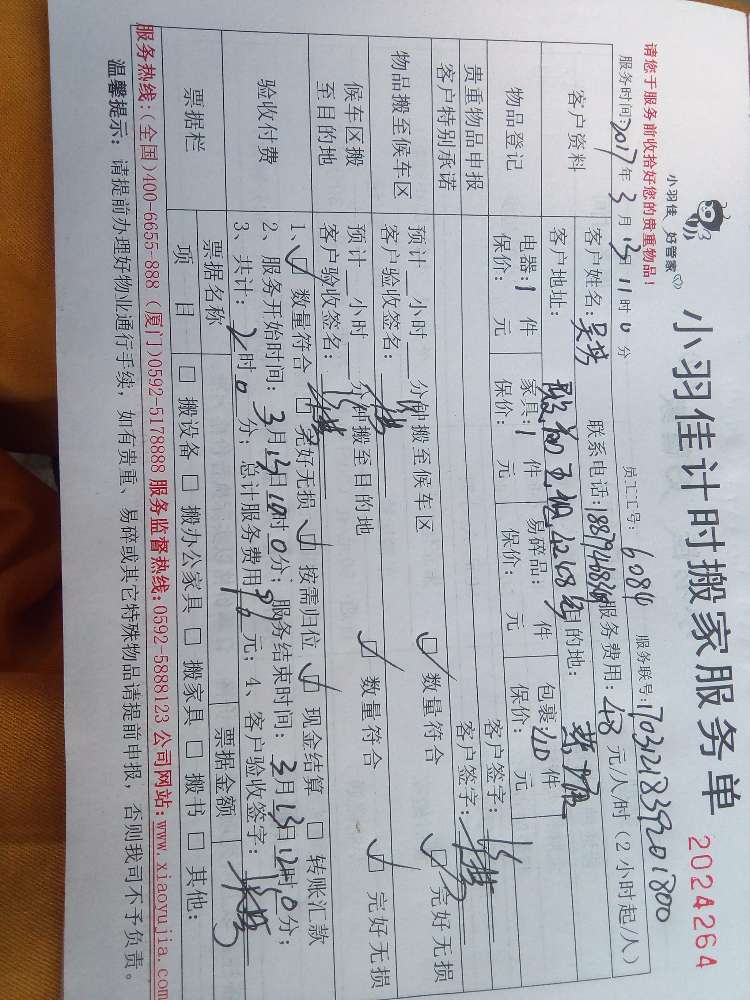 小羽佳 好管家
小羽佳计时搬家服务单 2024264
请您于服务前收拾好您的贵重物品!
员工工号: 6084 服务联号:
服务时间: 2017年3月13日11时0分
客户资料 客户姓名: 联系电话: 服务费用: 48元/人/时(2小时起/人)
客户地址: 目的地:
物品登记 电器: 1 件 家具: 1 件 易碎品: 件 包裹: 件
保价: 元 保价: 元 保价: 元 保价: 元
贵重物品申报 客户签字:
客户特别承诺 客户签字:
物品搬至候车区 预计 小时 分钟搬至候车区 数量符合 完好无损
客户验收签名:
候车区搬至目的地 预计 小时 分钟搬至目的地 数量符合 完好无损
客户验收签名:
验收付费 1、 数量符合 完好无损 按需归位 现金结算 转账汇款
2、服务开始时间: 3月13日10时0分; 服务结束时间: 3月13日12时0分;
3、共计: 2时0分; 总计服务费用 96 元; 4、客户验收签字:
票据栏 票据名称 票据金额
项目 搬设备 搬办公家具 搬家具 搬书 其他:
服务热线:(全国)400-6655-888 (厦门)0592-5178888 服务监督热线:0592-5888123 公司网站:www.xiaoyujia.com
温馨提示: 请提前办理好物业通行手续, 如有贵重、易碎或其它特殊物品请提前申报, 否则我司不予负责。